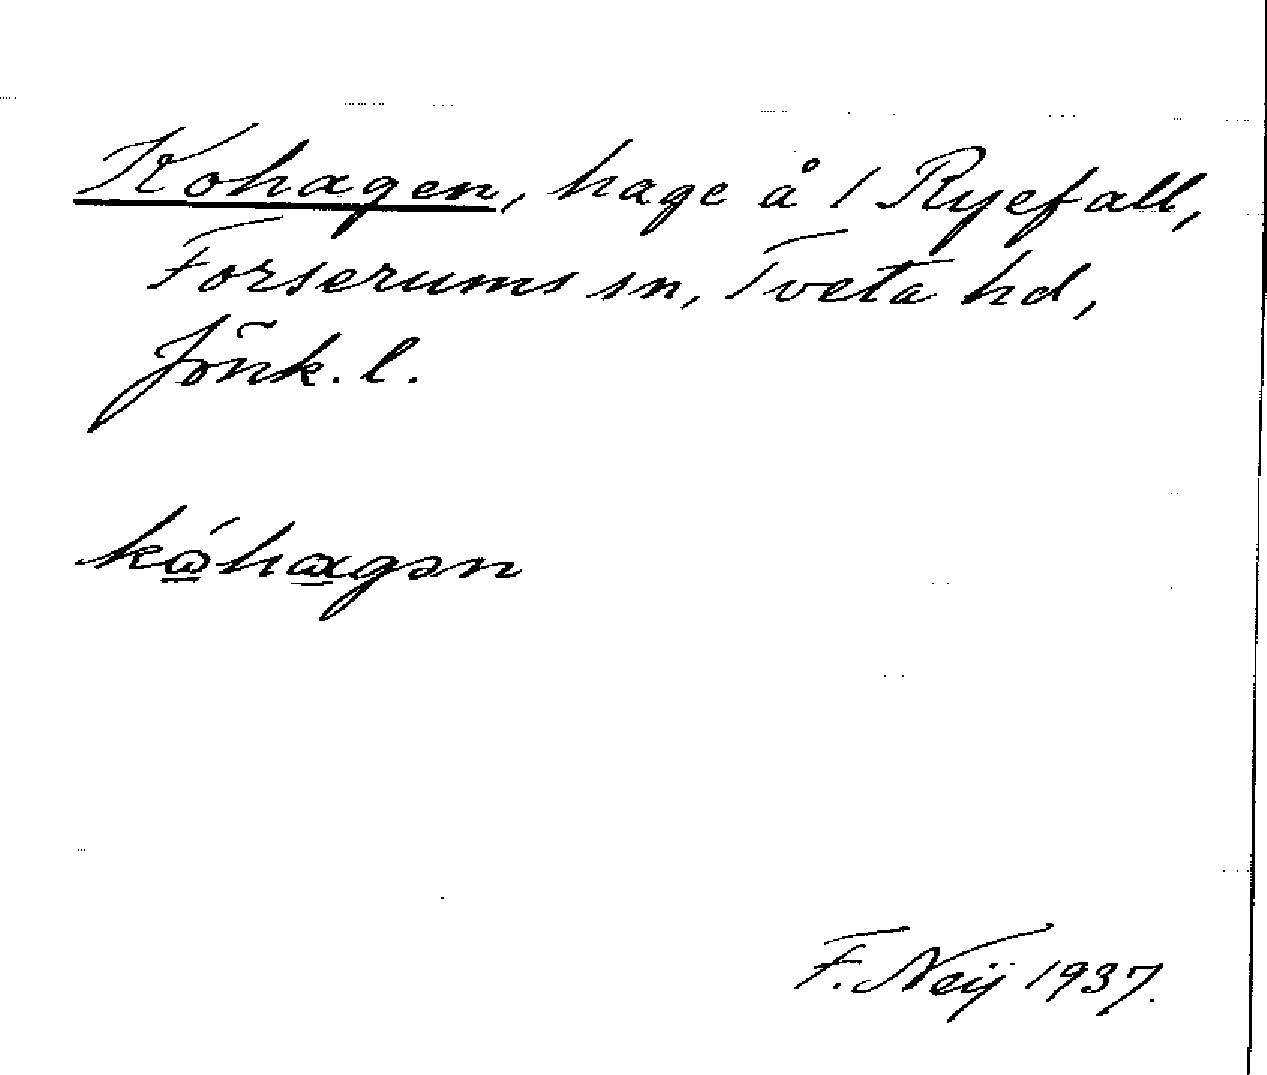 Kohagen, hage å 1 Ryefall,
Forserums sn, Tveta hd,
Jönk. l.
kǿhagən
F. Neij 1937.